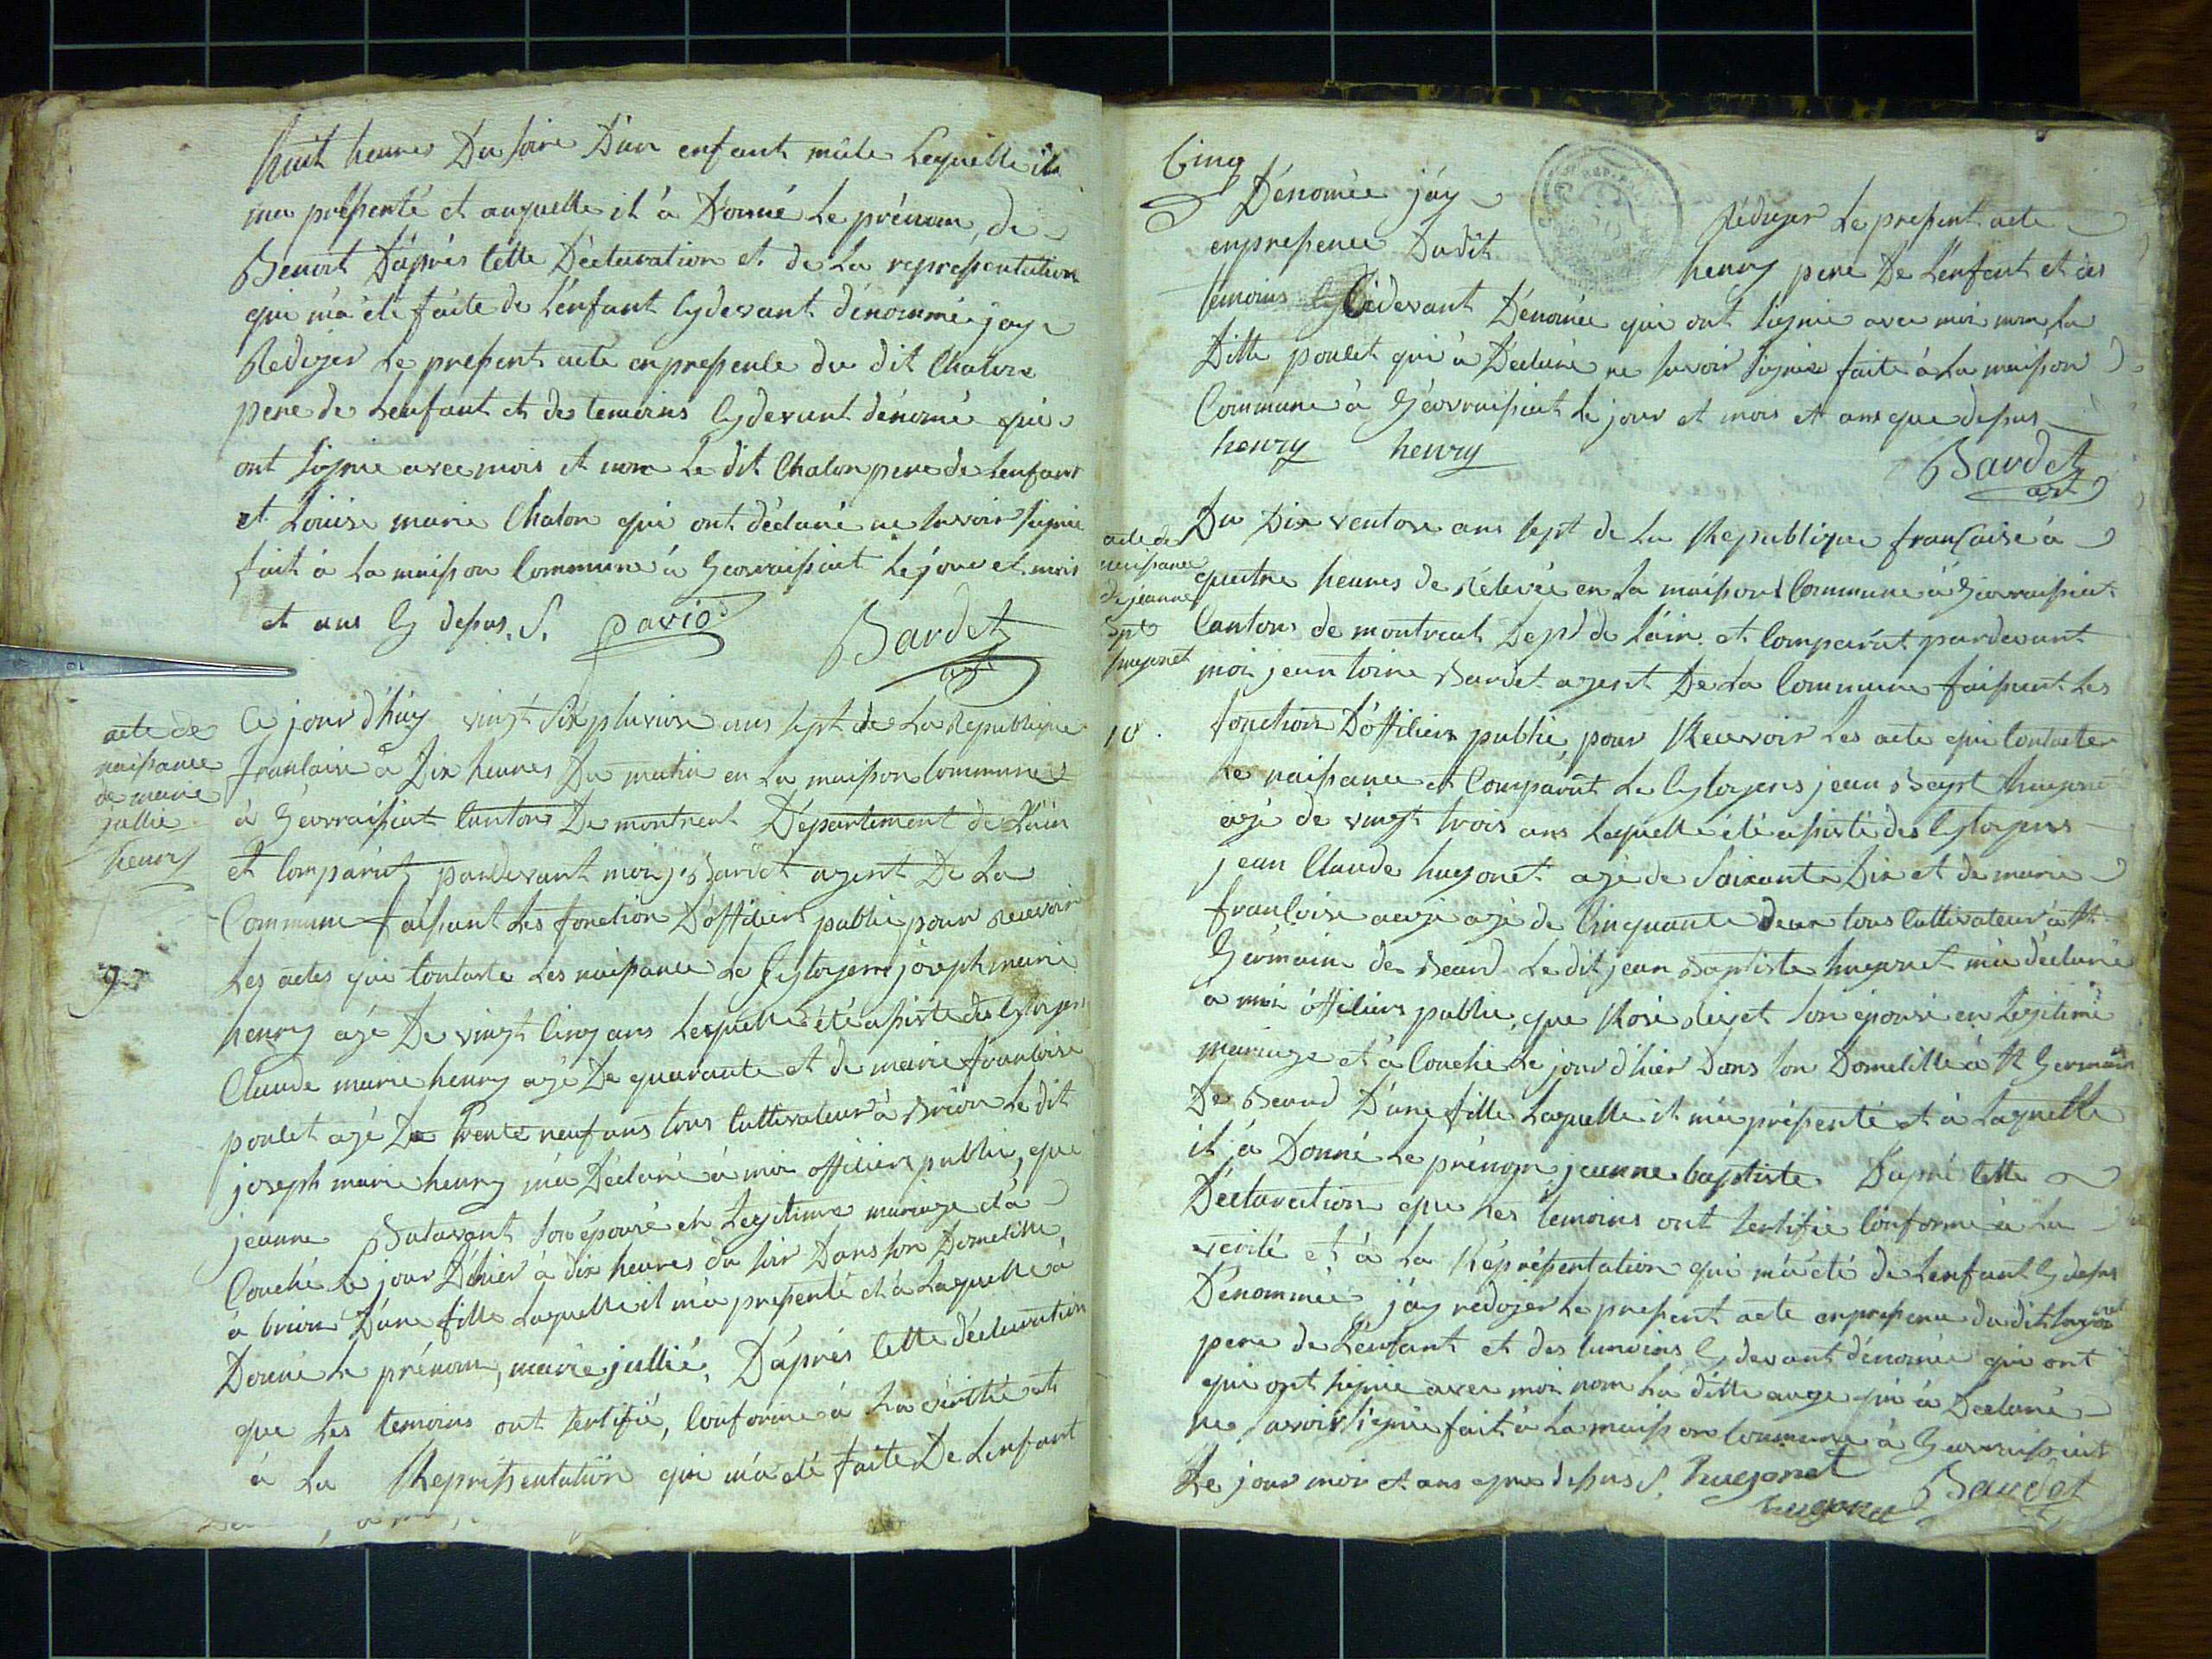 huit heures Du soire D'un enfant mâle Lequelle il
ma présenté et auquelle il à Donné Le prénom, de
Benoit D'après cette Déclaration et de La representation
qui m'a été faite de L'enfant cydevant dénommé j'ay
Rediger Le present acte en presence du dit Chaton
pere de L'enfant et de temoins cydevant dénomé qui
ont signie avec mois et non Le dit Chalon pere de Lenfant
et Louise marie Chalon qui ont déclaré ne savoir signie
fait à La maison Commune à Geovraisiat Le jour et mois
et ans cy desus. S. pavio
Bardet
agt
acte de
naisance
de marie
jullie
henry
9
Ce jour d'huy vingt six pluviose ans sept de La Republique
francaise à Dix heures Du matin en La maison Commune
à Géovraisiat Canton De montreal Département de L'ain
et Comparût pardevant moi j. Bardet agent De La
Commune faisant Les fonction D'officier public pour recevoir
Les actes qui Constate Les naisance Le Cytoyens joseph marie
henry agé De vingt Cinq ans Lequelle été asisté des Cytoyens
Claude marie henry agé De quarante et de marie francoise
poulet agé De trente neuf ans tous Cultivateur à Brion Le dit
joseph marie henry m'a Déclaré à moi officier public, que
jeanne Balavant son épousé en Legitime mariage et à
Couché Le jour D'hier à dix heures du soir Dans son Domcille
à brion D'une fille Laquelle il m'a presenté et à Laquelle à
Donné Le prénom, marie jullié, D'après Cette déclaration
que Les temoins ont Certifié, Conforme à La véritée et
à La Représentation qui m'a été faite De Lenfant
Cinq
Dénomée j'ay Rédiger Le present acte
en presence Dudit henry pere De L'enfent et des
temoins Cidevant Dénomée qui ont signie avec moi non La
Ditte poulet qui à Déclaré ne savoir signie faite à La maison
Commune à Géovraisiat Le jour et mois et ans que desus
henry henry
Bardet
agt
acte de
naisance
de jeanne
Bpte
hugonet
10.
Du Dix ventose ans sept de La Republique française à
quatre heures de Relevée en La maison Commune à Géovraisiat
Cantons de montreal Dept de L'ain et Comparût pardevant
moi jean toine Bardet agent De La Commune faisant Les
fonction D'officier public, pour Recevoir Les acte qui Constater
Le naisance et Comparut Le Cytoyens jean Bapt hugonet
agé de vingt trois ans Laquelle été asisté des Cytoyens
jean Claude hugonet agé de Soixante Dix et de marie
françoise auge agé de Cinquante deux tous Cultivateur à St
Germain de Béard Le dit jean Baptiste hugonet m'a déclaré
a moi officiers public, que Rose son épousé en Legitime
mariage et à Couché Le jour d'hier Dans son Domcille à St Germain
De Beard D'une fille Laquelle il m'a présenté et à Laquelle
il à Donné Le prénom jeanne baptiste D'apré Cette
Déclaration que Les temoins ont Certifié Conforme à La
verité et à La Répresentation qui m'a été de Lenfant cy desus
Dénommée j'ay rediger Le present acte en presence du dit hugonet
pere de L'enfant et des temoins cy devant dénomé qui ont
qui ont signie avec moi non La ditte auge qui à Declaré
ne savoir signie fait à La maison Commune à Geovraisiat
Le jour mois et ans que desus S. hugonet
hugonet Bardet